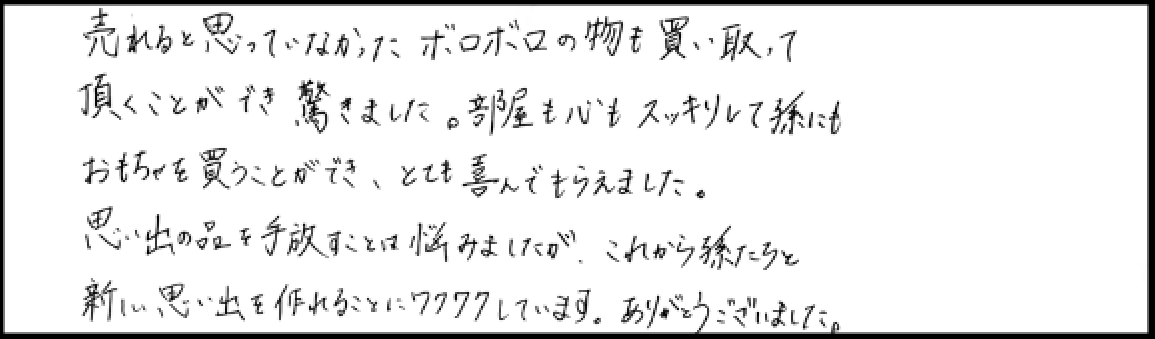 売れると思っていなかった ボロボロの物も買い取って
頂くことができ驚きました。部屋も心もスッキリして孫にも
おもちゃを買うことができ、とても喜んでもらえました。
思い出の品を手放すことは悩みましたが、これから孫たちと
新しい思い出を作れることにワクワクしています。ありがとうございました。